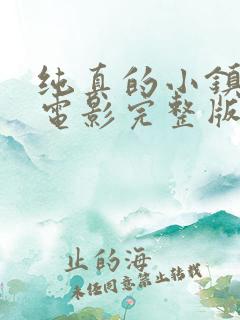 纯真的小镇
電影完整版
止的海
未经同意禁止转载